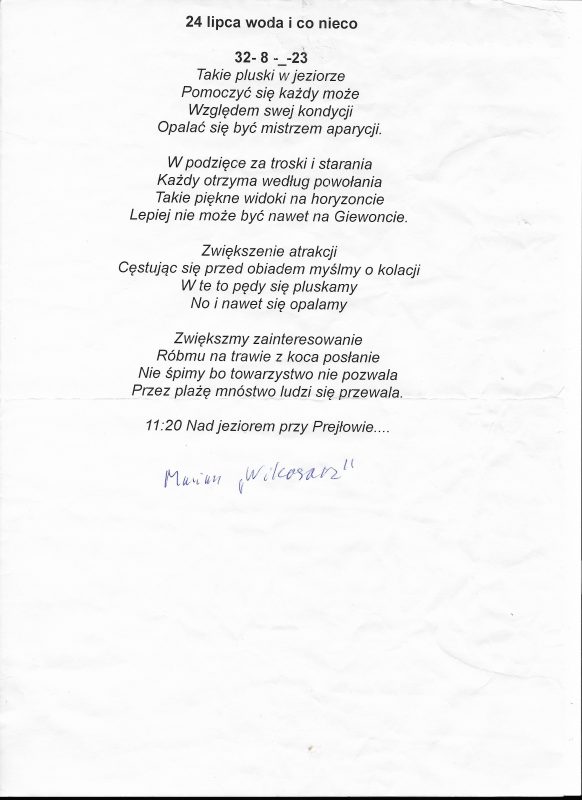 24 lipca woda i co nieco
32- 8 -_-23
Takie pluski w jeziorze
Pomoczyć się każdy może
Względem swej kondycji
Opalać się być mistrzem aparycji.
W podzięce za troski i starania
Każdy otrzyma według powołania
Takie piękne widoki na horyzoncie
Lepiej nie może być nawet na Giewoncie.
Zwiększenie atrakcji
Cęstując się przed obiadem myślmy o kolacji
W te to pędy się pluskamy
No i nawet się opalamy
Zwiększmy zainteresowanie
Róbmu na trawie z koca posłanie
Nie śpimy bo towarzystwo nie pozwala
Przez plażę mnóstwo ludzi się przewala.
11:20 Nad jeziorem przy Prejłowie....
Marian „Wilkosarz"